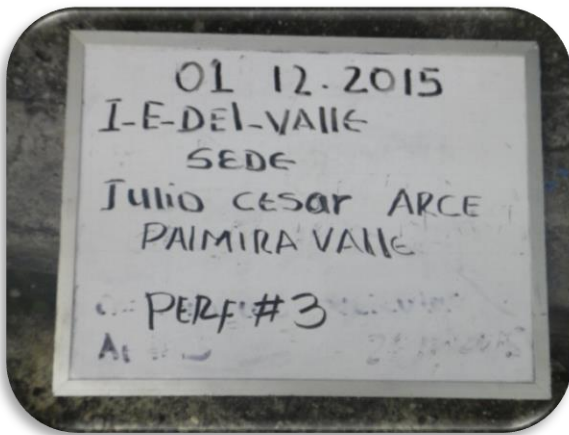 01 12.2015
I-E-DEl-VAllE
SEDE
Julio cesar ARCE
PAlMIRA VAllE
PERF #3